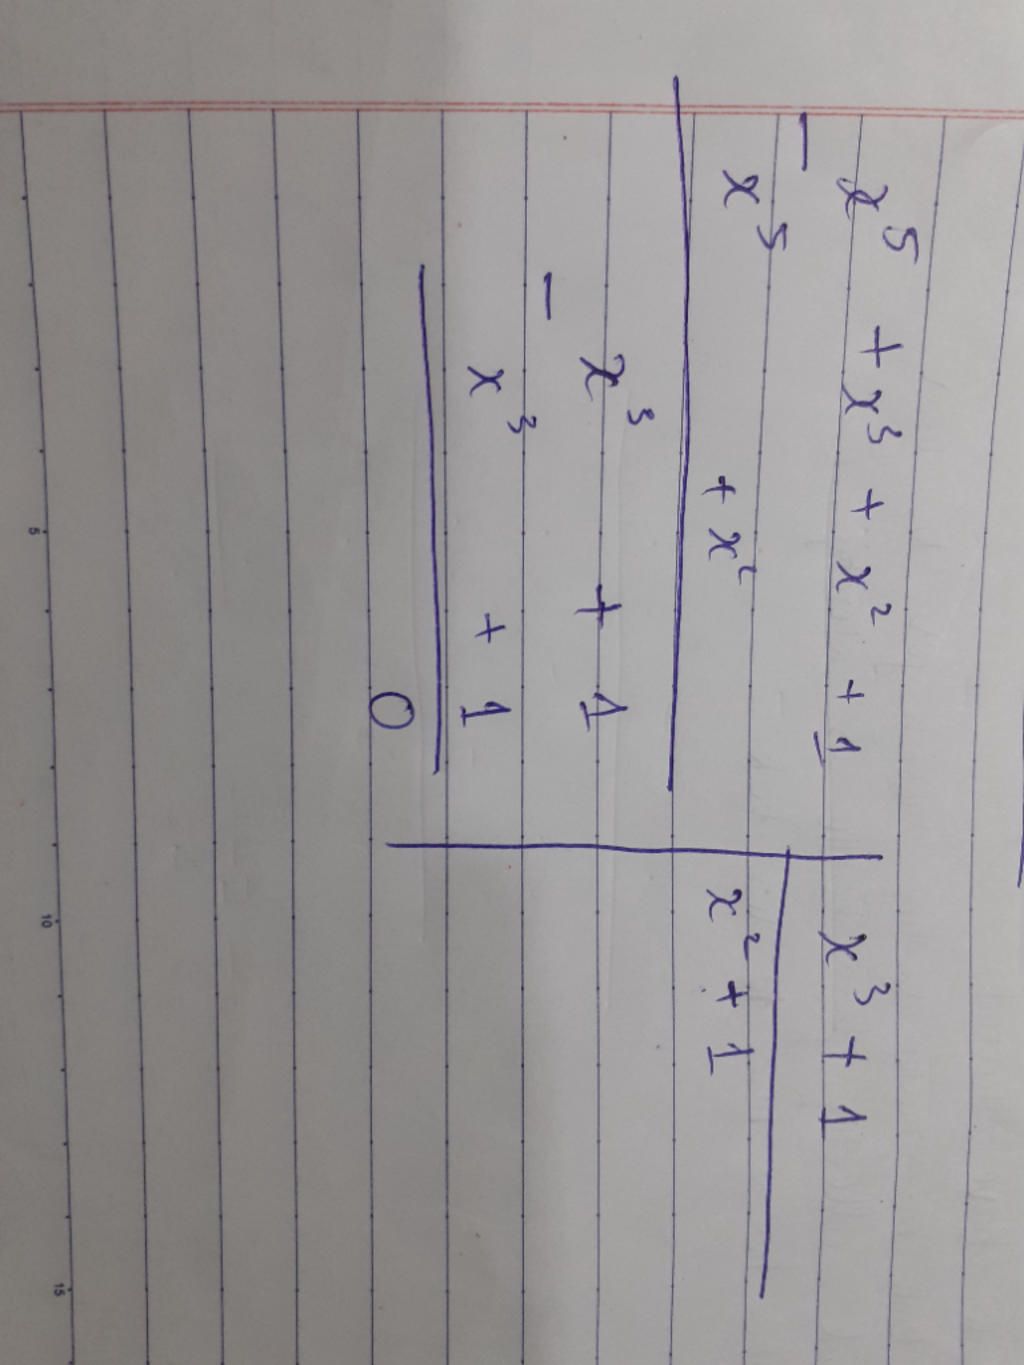 x⁵ + x³ + x² + 1 | x³ + 1
− x⁵ + x² | x² + 1
x³ + 1
− x³ + 1
0
5 10 15